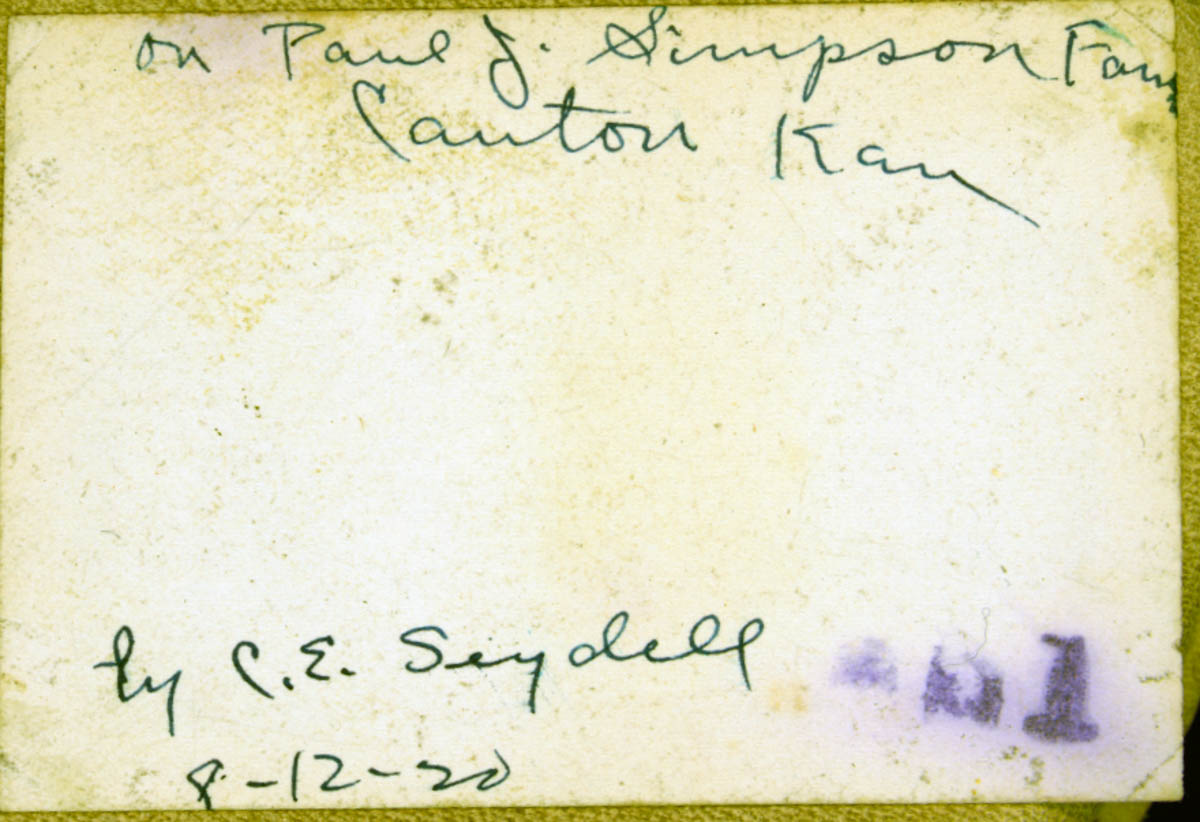 on Paul J. Simpson Farm
Canton Kan
by C.E. Seydell
8-12-20
1